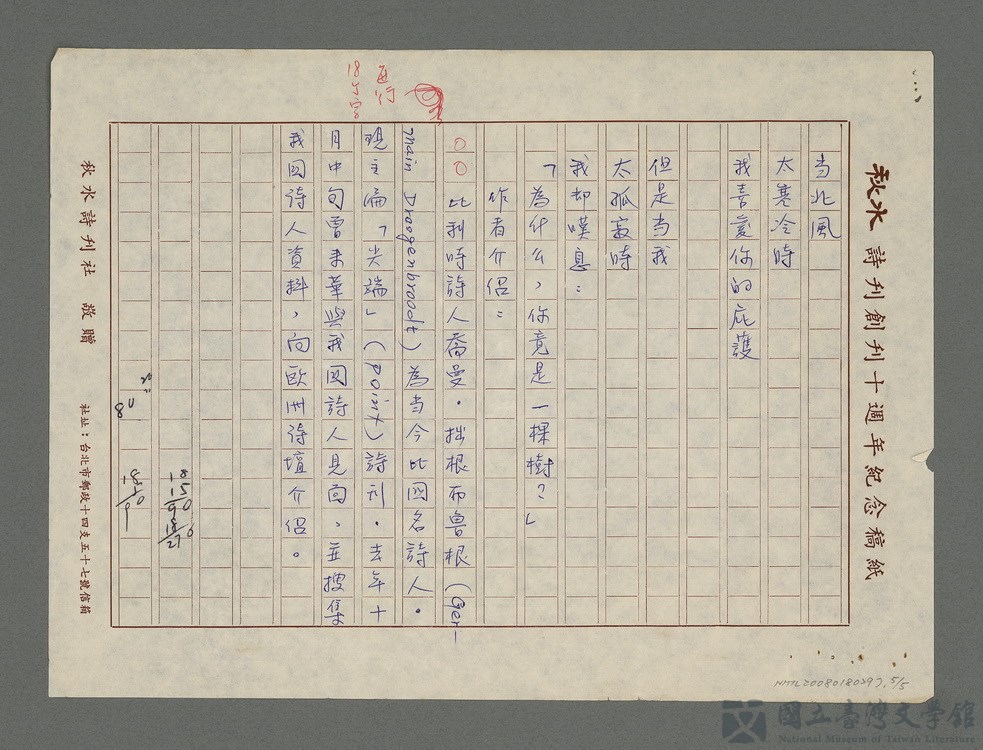 秋水 詩刊創刊十週年紀念稿紙
当北風
太寒冷時
我喜爱你的庇護
但是当我
太孤寂時
我却嘆息：
「為什么，你竟是一棵樹？」
作者介绍：
○○比利时詩人喬曼．拙根布魯根（Ger–
main Droogenbroodt）為当今比国名詩人。
現主编「尖端」（point）詩刊．去年十
月中旬曾来華與我國詩人見面、並搜集
我国诗人資料，向欧洲诗壇介绍。
每行
18个字
秋水詩刊社 敬贈
社址：台北市郵政十四支五十七號信箱
NMTL20080180397, 5/5
國立臺灣文學館
National Museum of Taiwan Literature